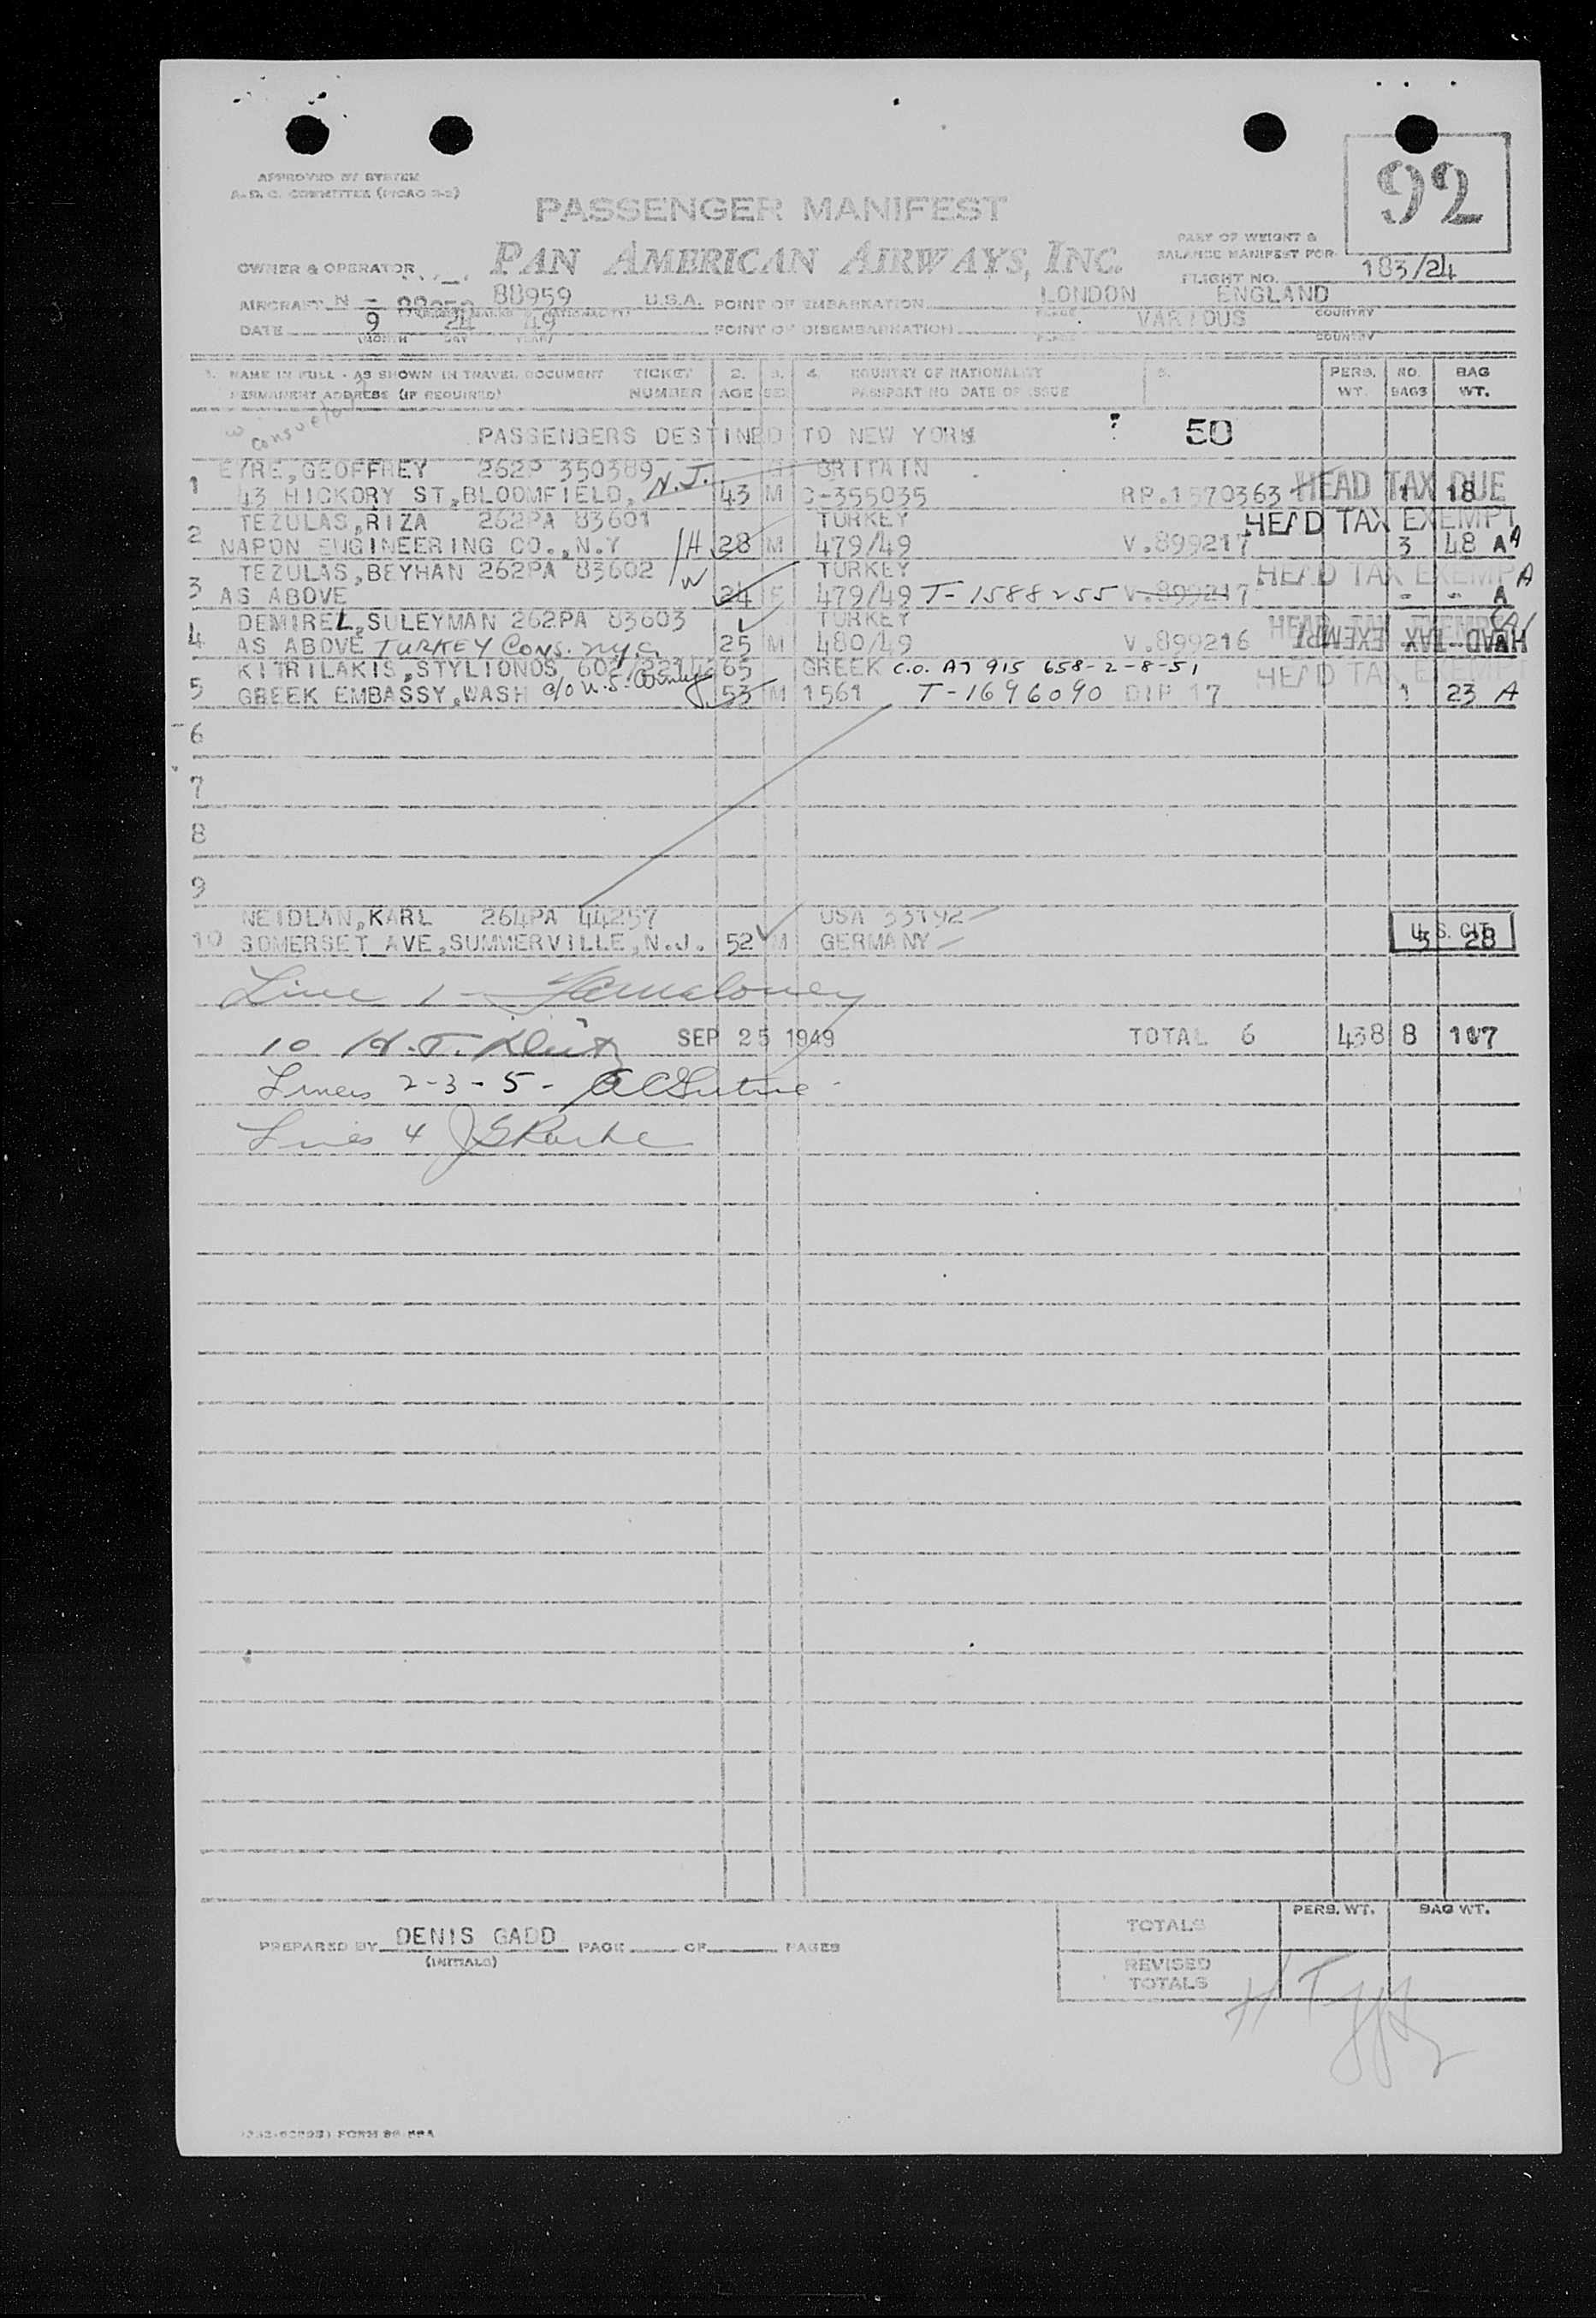 92
APPROVED BY SYSTEM
A.D.C. COMMITTEE (
PASSENGER MANIFEST
PAN AMERICAN AIRWAYS, INC.
PART OF WEIGHT &
BALANCE MANIFEST FOR
FLIGHT NO. 183/24
OWNER & OPERATOR
AIRCRAFT N - 88959 U.S.A. POINT OF EMBARKATION LONDON ENGLAND
PLACE COUNTRY
DATE 9 24 49 POINT OF DISEMBARKATION VARIOUS
(MONTH DAY YEAR) PLACE COUNTRY
1. NAME IN FULL - AS SHOWN IN TRAVEL DOCUMENT TICKET 2. 3. 4. COUNTRY OF NATIONALITY 5. PERS. NO. BAG
PERMANENT ADDRESS (IF REQUIRED) NUMBER AGE SEX PASSPORT NO DATE OF ISSUE WT. BAGS WT.
PASSENGERS DESTINED TO NEW YORK 50
EYRE,GEOFFREY 262P 350389 BRITAIN
1 43 HICKORY ST,BLOOMFIELD, N.J. 43 M C-355035 RP.1570363 HEAD TAX DUE 1 18
TEZULAS,RIZA 262PA 83601 TURKEY HEAD TAX EXEMPT
2 NAPON ENGINEERING CO.,N.Y /H 28 M 479/49 V.899217 3 48 A A
TEZULAS,BEYHAN 262PA 83602 /W TURKEY HEAD TAX EXEMPT A
3 AS ABOVE 24 F 479/49 T-1588255 V.899217 - - A
DEMIREL,SULEYMAN 262PA 83603 TURKEY
4 AS ABOVE TURKEY CONS. NYC 25 M 480/49 V.899216 HEAD TAX EXEMPT
KITRILAKIS,STYLIONOS GREEK C.O. A7 915 658-2-8-51 HEAD TAX EXEMPT
5 GREEK EMBASSY,WASH c/o 53 M 1561 T-1696090 DIP 17 1 23 A
6
7
8
9
NEIDLAN,KARL 264PA 44257 USA 33192
10 SOMERSET AVE,SUMMERVILLE,N.J. 52 M GERMANY U.S. CIT. 3 28
Line 1 -
10 H.T. SEP 25 1949 TOTAL 6 438 8 117
Lines 2-3-5-
Lines 4
PREPARED BY DENIS GADD PAGE OF PAGES
(INITIALS)
PERS. WT. BAG WT.
TOTALS
REVISED
TOTALS
FORM